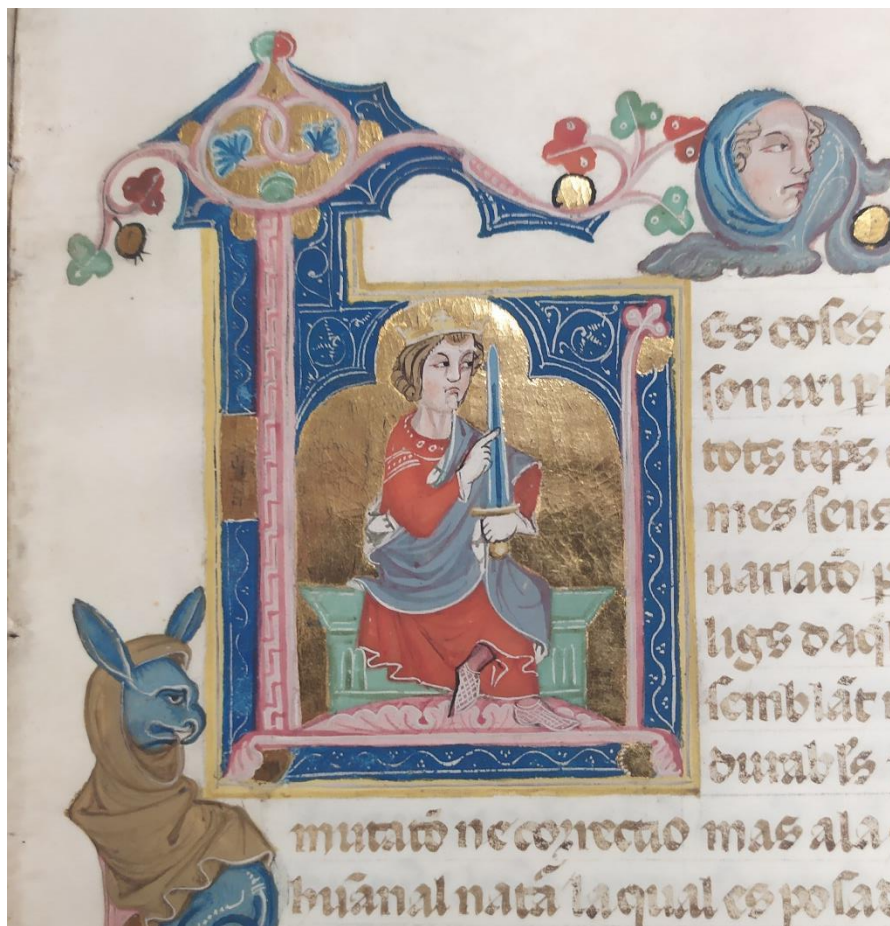 L
es coses
sen ari p
tots tẽps
mes sens
uariatõ p
ligs daq
semblãt
durabl's
mutatõ ne correctio mas a la
huãnal natã la qual es posad